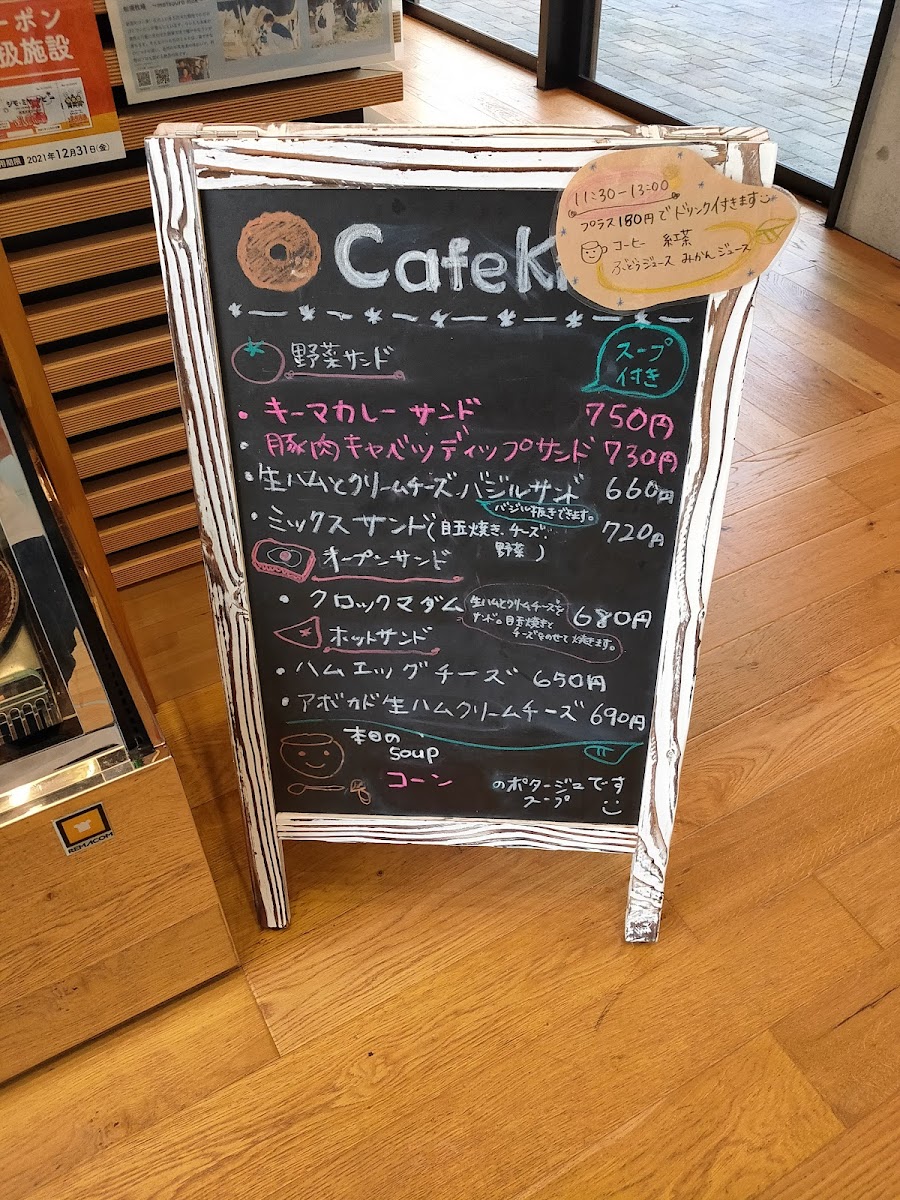 ーポン
扱施設
2021年12月31日(金)
11:30-13:00
プラス180円でドリンク付きます
コーヒー 紅茶
ぶどうジュース みかんジュース
CafeK
野菜サンド
スープ
付き
・キーマカレーサンド 750円
・豚肉キャベツディップサンド 730円
・生ハムとクリームチーズバジルサンド 660円
バジル抜きできます。
・ミックスサンド(目玉焼き、チーズ、 720円
野菜)
オープンサンド
・クロックマダム 680円
生ハムとクリームチーズを
サンド。目玉焼きと
チーズをのせて焼きます。
ホットサンド
・ハムエッグチーズ 650円
・アボカド生ハムクリームチーズ 690円
本日の
soup
コーン のポタージュです
スープ
REMACOM